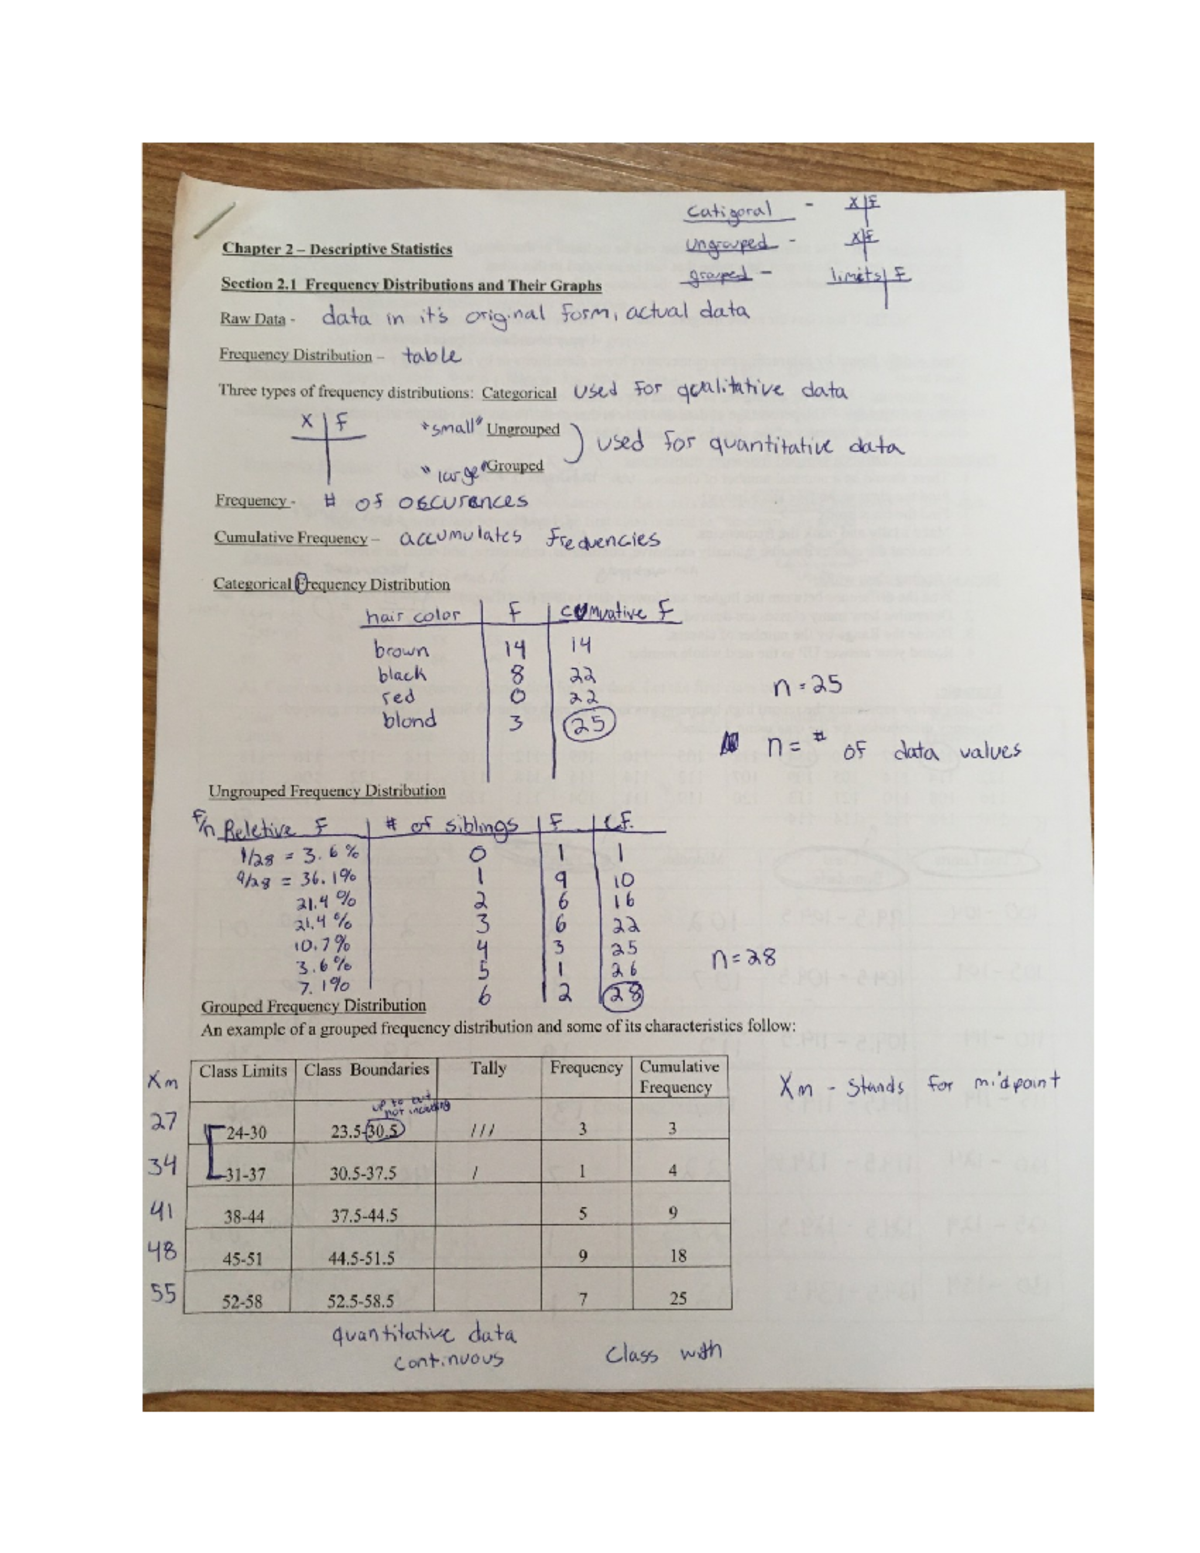 Catigoral - X | F
Chapter 2 – Descriptive Statistics
ungrouped - X | F
grouped - limits | F
Section 2.1 Frequency Distributions and Their Graphs
Raw Data - data in it's original form, actual data
Frequency Distribution – table
Three types of frequency distributions: Categorical used for qualitative data
X | F
"small" Ungrouped
used for quantitative data
"large" Grouped
Frequency - # of occurences
Cumulative Frequency – accumulates frequencies
Categorical Frequency Distribution
hair color | F | cumuative F
brown | 14 | 14
black | 8 | 22
red | 0 | 22
n = 25
blond | 3 | 25
n = # of data values
Ungrouped Frequency Distribution
F/n Reletive F | # of siblings | F | C.F.
1/28 = 3.6% | 0 | 1 | 1
9/28 = 36.1% | 1 | 9 | 10
21.4% | 2 | 6 | 16
21.4% | 3 | 6 | 22
10.7% | 4 | 3 | 25
n = 28
3.6% | 5 | 1 | 26
7.1% | 6 | 2 | 28
Grouped Frequency Distribution
An example of a grouped frequency distribution and some of its characteristics follow:
Xm | Class Limits | Class Boundaries | Tally | Frequency | Cumulative Frequency
Xm - Stands for midpoint
up to but
not including
27 | 24-30 | 23.5-30.5 | /// | 3 | 3
34 | 31-37 | 30.5-37.5 | / | 1 | 4
41 | 38-44 | 37.5-44.5 | 5 | 9
48 | 45-51 | 44.5-51.5 | 9 | 18
55 | 52-58 | 52.5-58.5 | 7 | 25
quantitative data
continuous
Class with